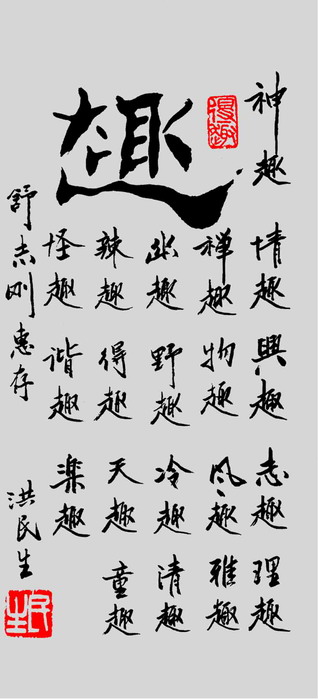 趣
神趣
情趣
興趣
志趣
理趣
禅趣
物趣
风趣
雅趣
幽趣
野趣
冷趣
清趣
辣趣
得趣
天趣
童趣
怪趣
谐趣
楽趣
舒志刚惠存
洪民生